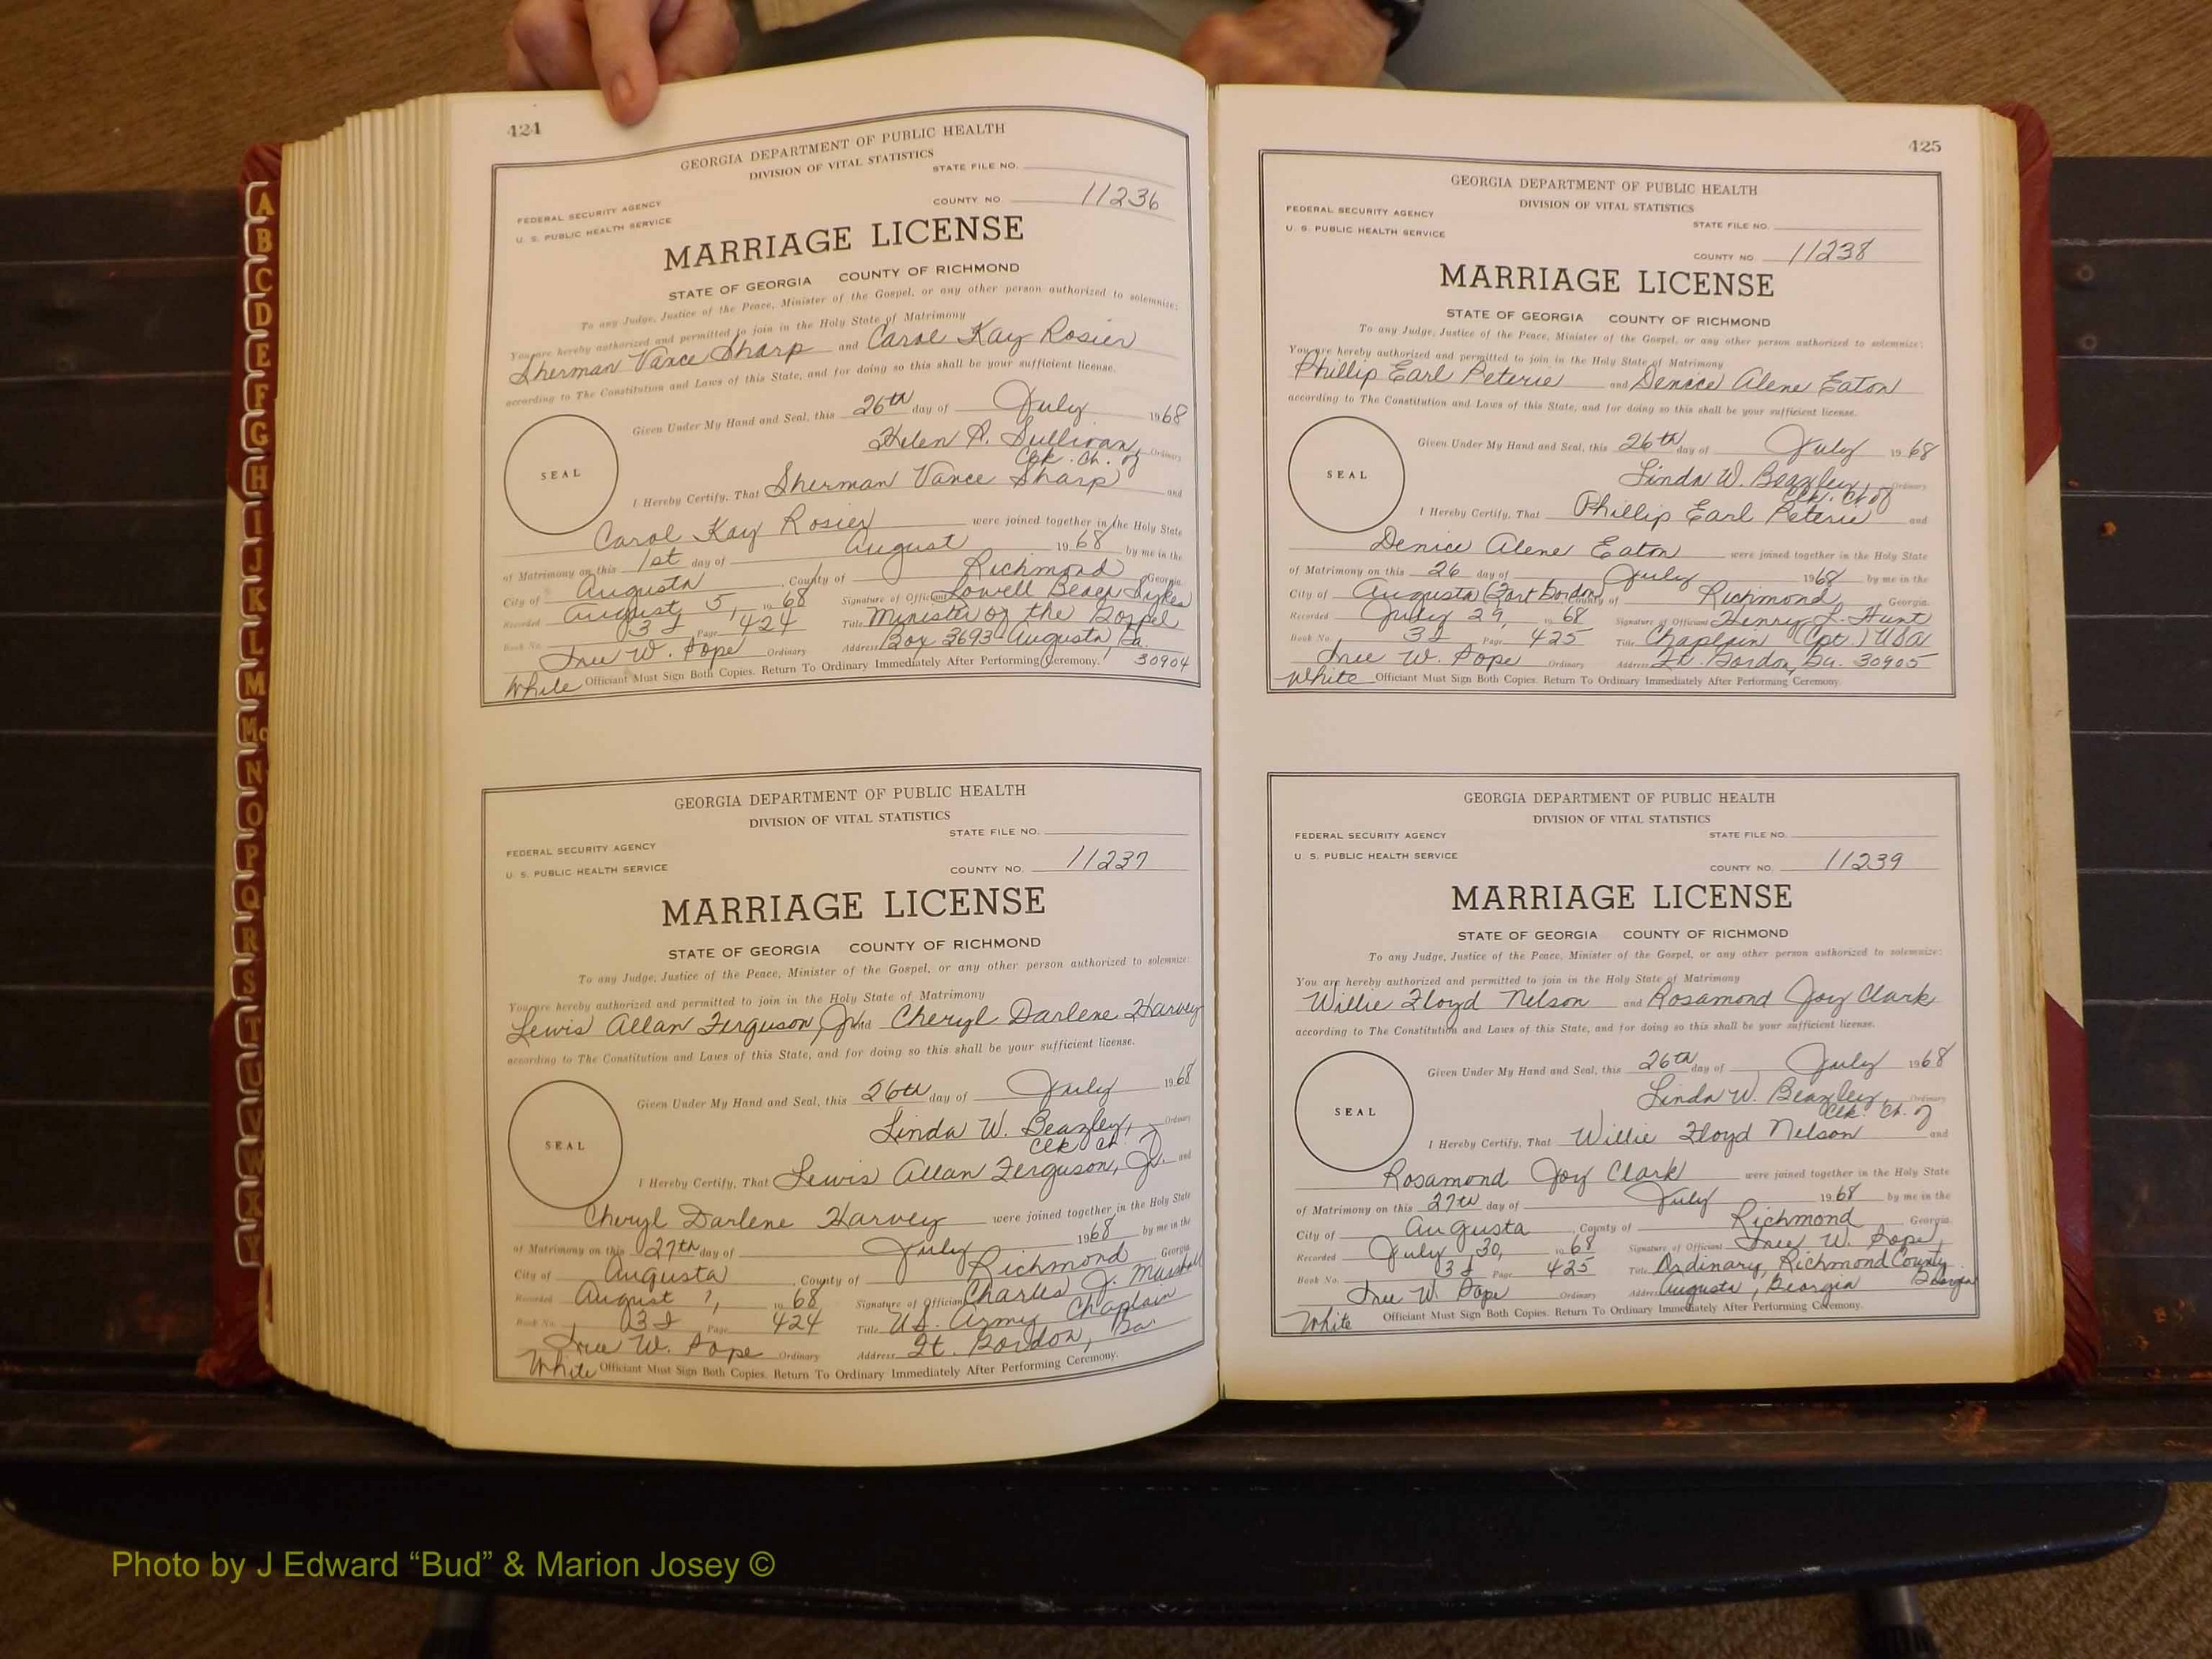 A
B
C
D
E
F
G
H
I
J
K
L
M
Mc
N
O
P
Q
R
S
T
U
V
W
X
Y
424
GEORGIA DEPARTMENT OF PUBLIC HEALTH
DIVISION OF VITAL STATISTICS
STATE FILE NO.
FEDERAL SECURITY AGENCY
U. S. PUBLIC HEALTH SERVICE
COUNTY NO. 11236
MARRIAGE LICENSE
STATE OF GEORGIA COUNTY OF RICHMOND
To any Judge, Justice of the Peace, Minister of the Gospel, or any other person authorized to solemnize:
You are hereby authorized and permitted to join in the Holy State of Matrimony
Sherman Vance Sharp and Carol Kay Rosier
according to The Constitution and Laws of this State, and for doing so this shall be your sufficient license.
Given Under My Hand and Seal, this 26th day of July 1968
Helen R. Sullivan, Ordinary
Clk. Ct. of
SEAL
I Hereby Certify, That Sherman Vance Sharp and
Carol Kay Rosier were joined together in the Holy State
of Matrimony on this 1st day of August 1968 by me in the
City of Augusta, County of Richmond Georgia
Recorded August 5, 1968 Signature of Officiant Lowell Beach Sykes
Book No. 3 I Page 424 Title Minister of the Gospel
Tree W. Pope Ordinary Address Box 3693-Augusta, Ga. 30904
White Officiant Must Sign Both Copies. Return To Ordinary Immediately After Performing Ceremony.
GEORGIA DEPARTMENT OF PUBLIC HEALTH
DIVISION OF VITAL STATISTICS
STATE FILE NO.
FEDERAL SECURITY AGENCY
U. S. PUBLIC HEALTH SERVICE
COUNTY NO. 11237
MARRIAGE LICENSE
STATE OF GEORGIA COUNTY OF RICHMOND
To any Judge, Justice of the Peace, Minister of the Gospel, or any other person authorized to solemnize:
You are hereby authorized and permitted to join in the Holy State of Matrimony
Lewis Allan Ferguson, Jr. and Cheryl Darlene Harvey
according to The Constitution and Laws of this State, and for doing so this shall be your sufficient license.
Given Under My Hand and Seal, this 26th day of July 1968
Linda W. Beazley, Ordinary
Clk Ct of
SEAL
I Hereby Certify, That Lewis Allan Ferguson, Jr. and
Cheryl Darlene Harvey were joined together in the Holy State
of Matrimony on this 27th day of July 1968 by me in the
City of Augusta, County of Richmond Georgia
Recorded August 1, 1968 Signature of Officiant Charles J. Marshall
Book No. 3 I Page 424 Title U.S. Army Chaplain
Tree W. Pope Ordinary Address Ft. Gordon, Ga.
White Officiant Must Sign Both Copies. Return To Ordinary Immediately After Performing Ceremony.
425
GEORGIA DEPARTMENT OF PUBLIC HEALTH
DIVISION OF VITAL STATISTICS
FEDERAL SECURITY AGENCY
STATE FILE NO.
U. S. PUBLIC HEALTH SERVICE
COUNTY NO. 11238
MARRIAGE LICENSE
STATE OF GEORGIA COUNTY OF RICHMOND
To any Judge, Justice of the Peace, Minister of the Gospel, or any other person authorized to solemnize:
You are hereby authorized and permitted to join in the Holy State of Matrimony
Phillip Earl Peterie and Denice Alene Eaton
according to The Constitution and Laws of this State, and for doing so this shall be your sufficient license.
Given Under My Hand and Seal, this 26th day of July 1968
Linda W. Beazley, Ordinary
Clk. Ct of
SEAL
I Hereby Certify, That Phillip Earl Peterie and
Denice Alene Eaton were joined together in the Holy State
of Matrimony on this 26 day of July 1968 by me in the
City of Augusta (Fort Gordon) County of Richmond, Georgia.
Recorded July 29, 1968 Signature of Officiant Henry L. Hunt
Book No. 3 I Page 425 Title Chaplain (Cpt.) USA
Tree W. Pope Ordinary Address Ft. Gordon, Ga. 30905
White Officiant Must Sign Both Copies. Return To Ordinary Immediately After Performing Ceremony.
GEORGIA DEPARTMENT OF PUBLIC HEALTH
DIVISION OF VITAL STATISTICS
FEDERAL SECURITY AGENCY
STATE FILE NO.
U. S. PUBLIC HEALTH SERVICE
COUNTY NO. 11239
MARRIAGE LICENSE
STATE OF GEORGIA COUNTY OF RICHMOND
To any Judge, Justice of the Peace, Minister of the Gospel, or any other person authorized to solemnize:
You are hereby authorized and permitted to join in the Holy State of Matrimony
Willie Floyd Nelson and Rosamond Joy Clark
according to The Constitution and Laws of this State, and for doing so this shall be your sufficient license.
Given Under My Hand and Seal, this 26th day of July 1968
Linda W. Beazley, Ordinary
Clk. Ct. of
SEAL
I Hereby Certify, That Willie Floyd Nelson and
Rosamond Joy Clark were joined together in the Holy State
of Matrimony on this 27th day of July 1968 by me in the
City of Augusta, County of Richmond Georgia
Recorded July 30, 1968 Signature of Officiant Tree W. Pope,
Book No. 3 I Page 425 Title Ordinary, Richmond County
Tree W. Pope Ordinary Address Augusta, Georgia Georgia
White Officiant Must Sign Both Copies. Return To Ordinary Immediately After Performing Ceremony.
Photo by J Edward “Bud” & Marion Josey ©